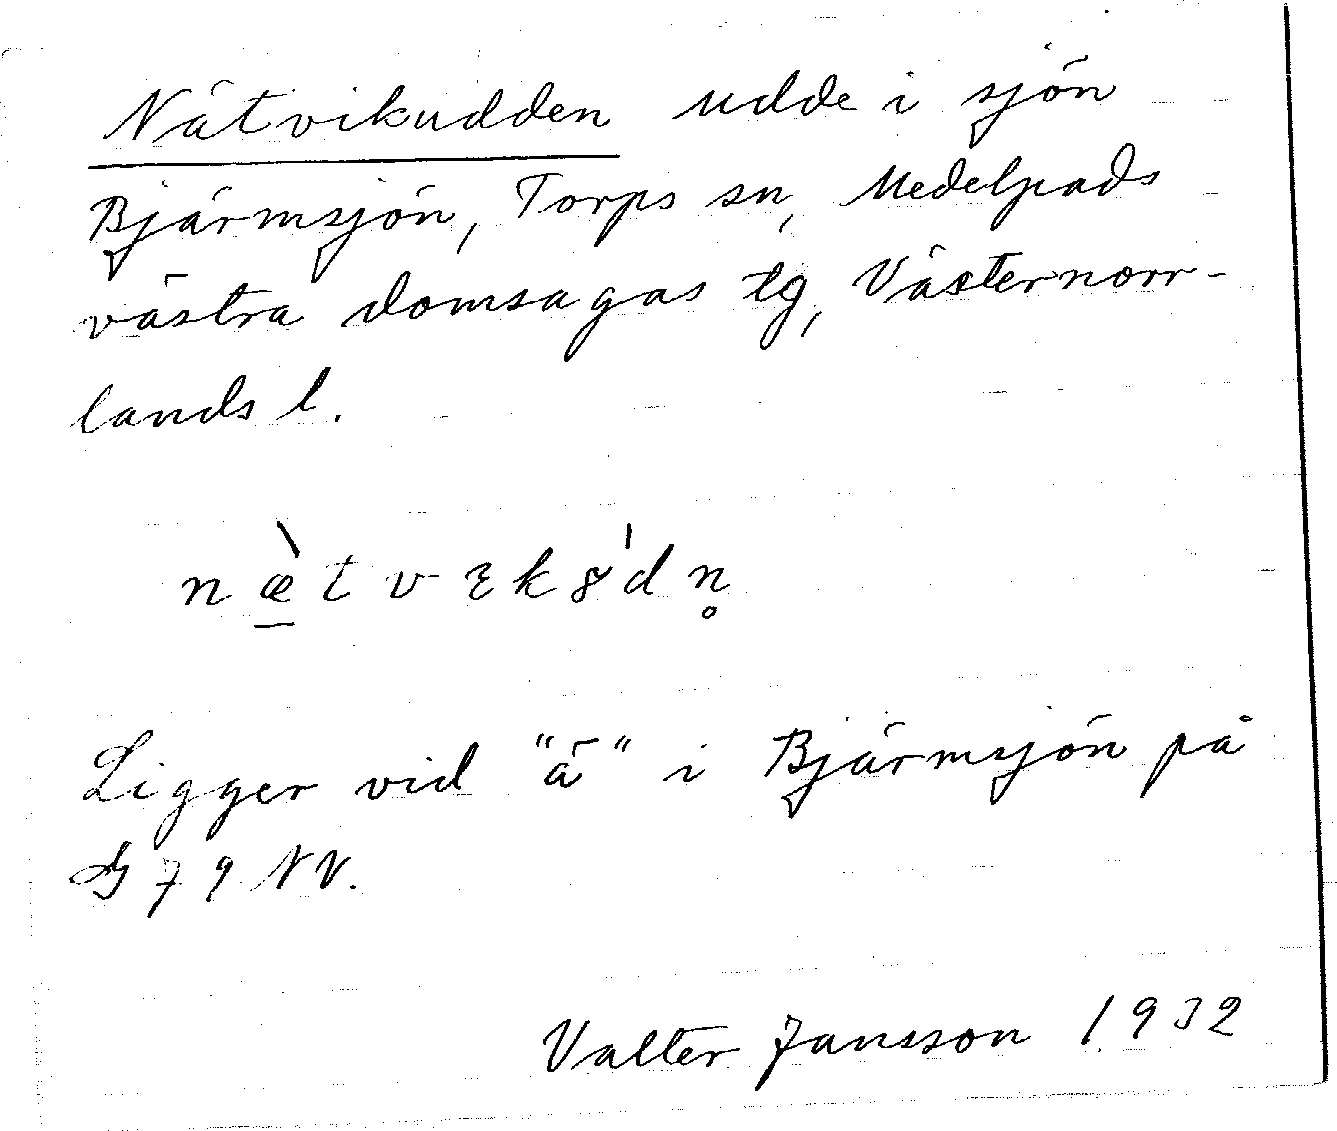 Nätvikudden udde i sjön
Bjärmsjön, Torps sn, Medelpads
västra domsagas tg, Västernorr-
lands l.
Ligger vid "ä" i Bjärmsjön på
G 79 NV.
Valter Jansson 1932